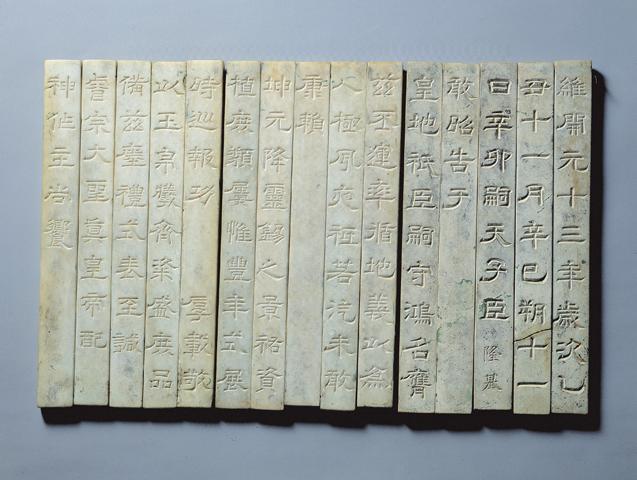 維開元十三年歲次乙
丑十一月辛巳朔十一
日辛卯嗣天子臣隆基
敢昭告于
皇地祇臣嗣守鴻名膺
茲丕運率循地義以爲
人極夙夜祗若汔未敢
康賴
坤元降靈錫之景祐資
植庶類屢惟豐年式展
時巡報功 厚載敬
以玉帛犧齊粢盛庶品
備茲瘞禮式表至誠
睿宗大聖眞皇帝配
神作主尚饗